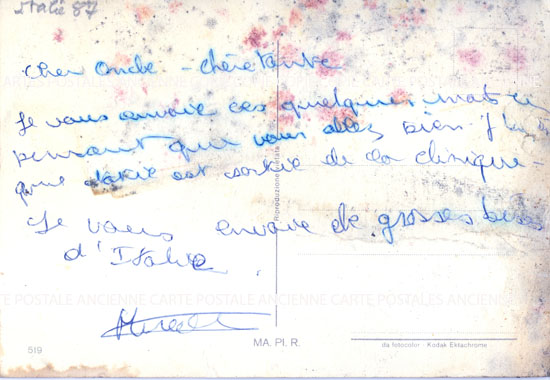 Italie 87
Cher Oncle - chère tante
Je vous envoie ces quelques mots en
pensant que vous allez bien
que est sortie de la clinique -
Je vous envoie de grosses bises
d'Italie.
Riproduzione vietata
CARTE POSTALE ANCIENNE CARTE POSTALE ANCIENNE CARTE POSTALES ANCIENNE CARTE POSTALE
519
MA. PI. R.
da fotocolor - Kodak Ektachrome